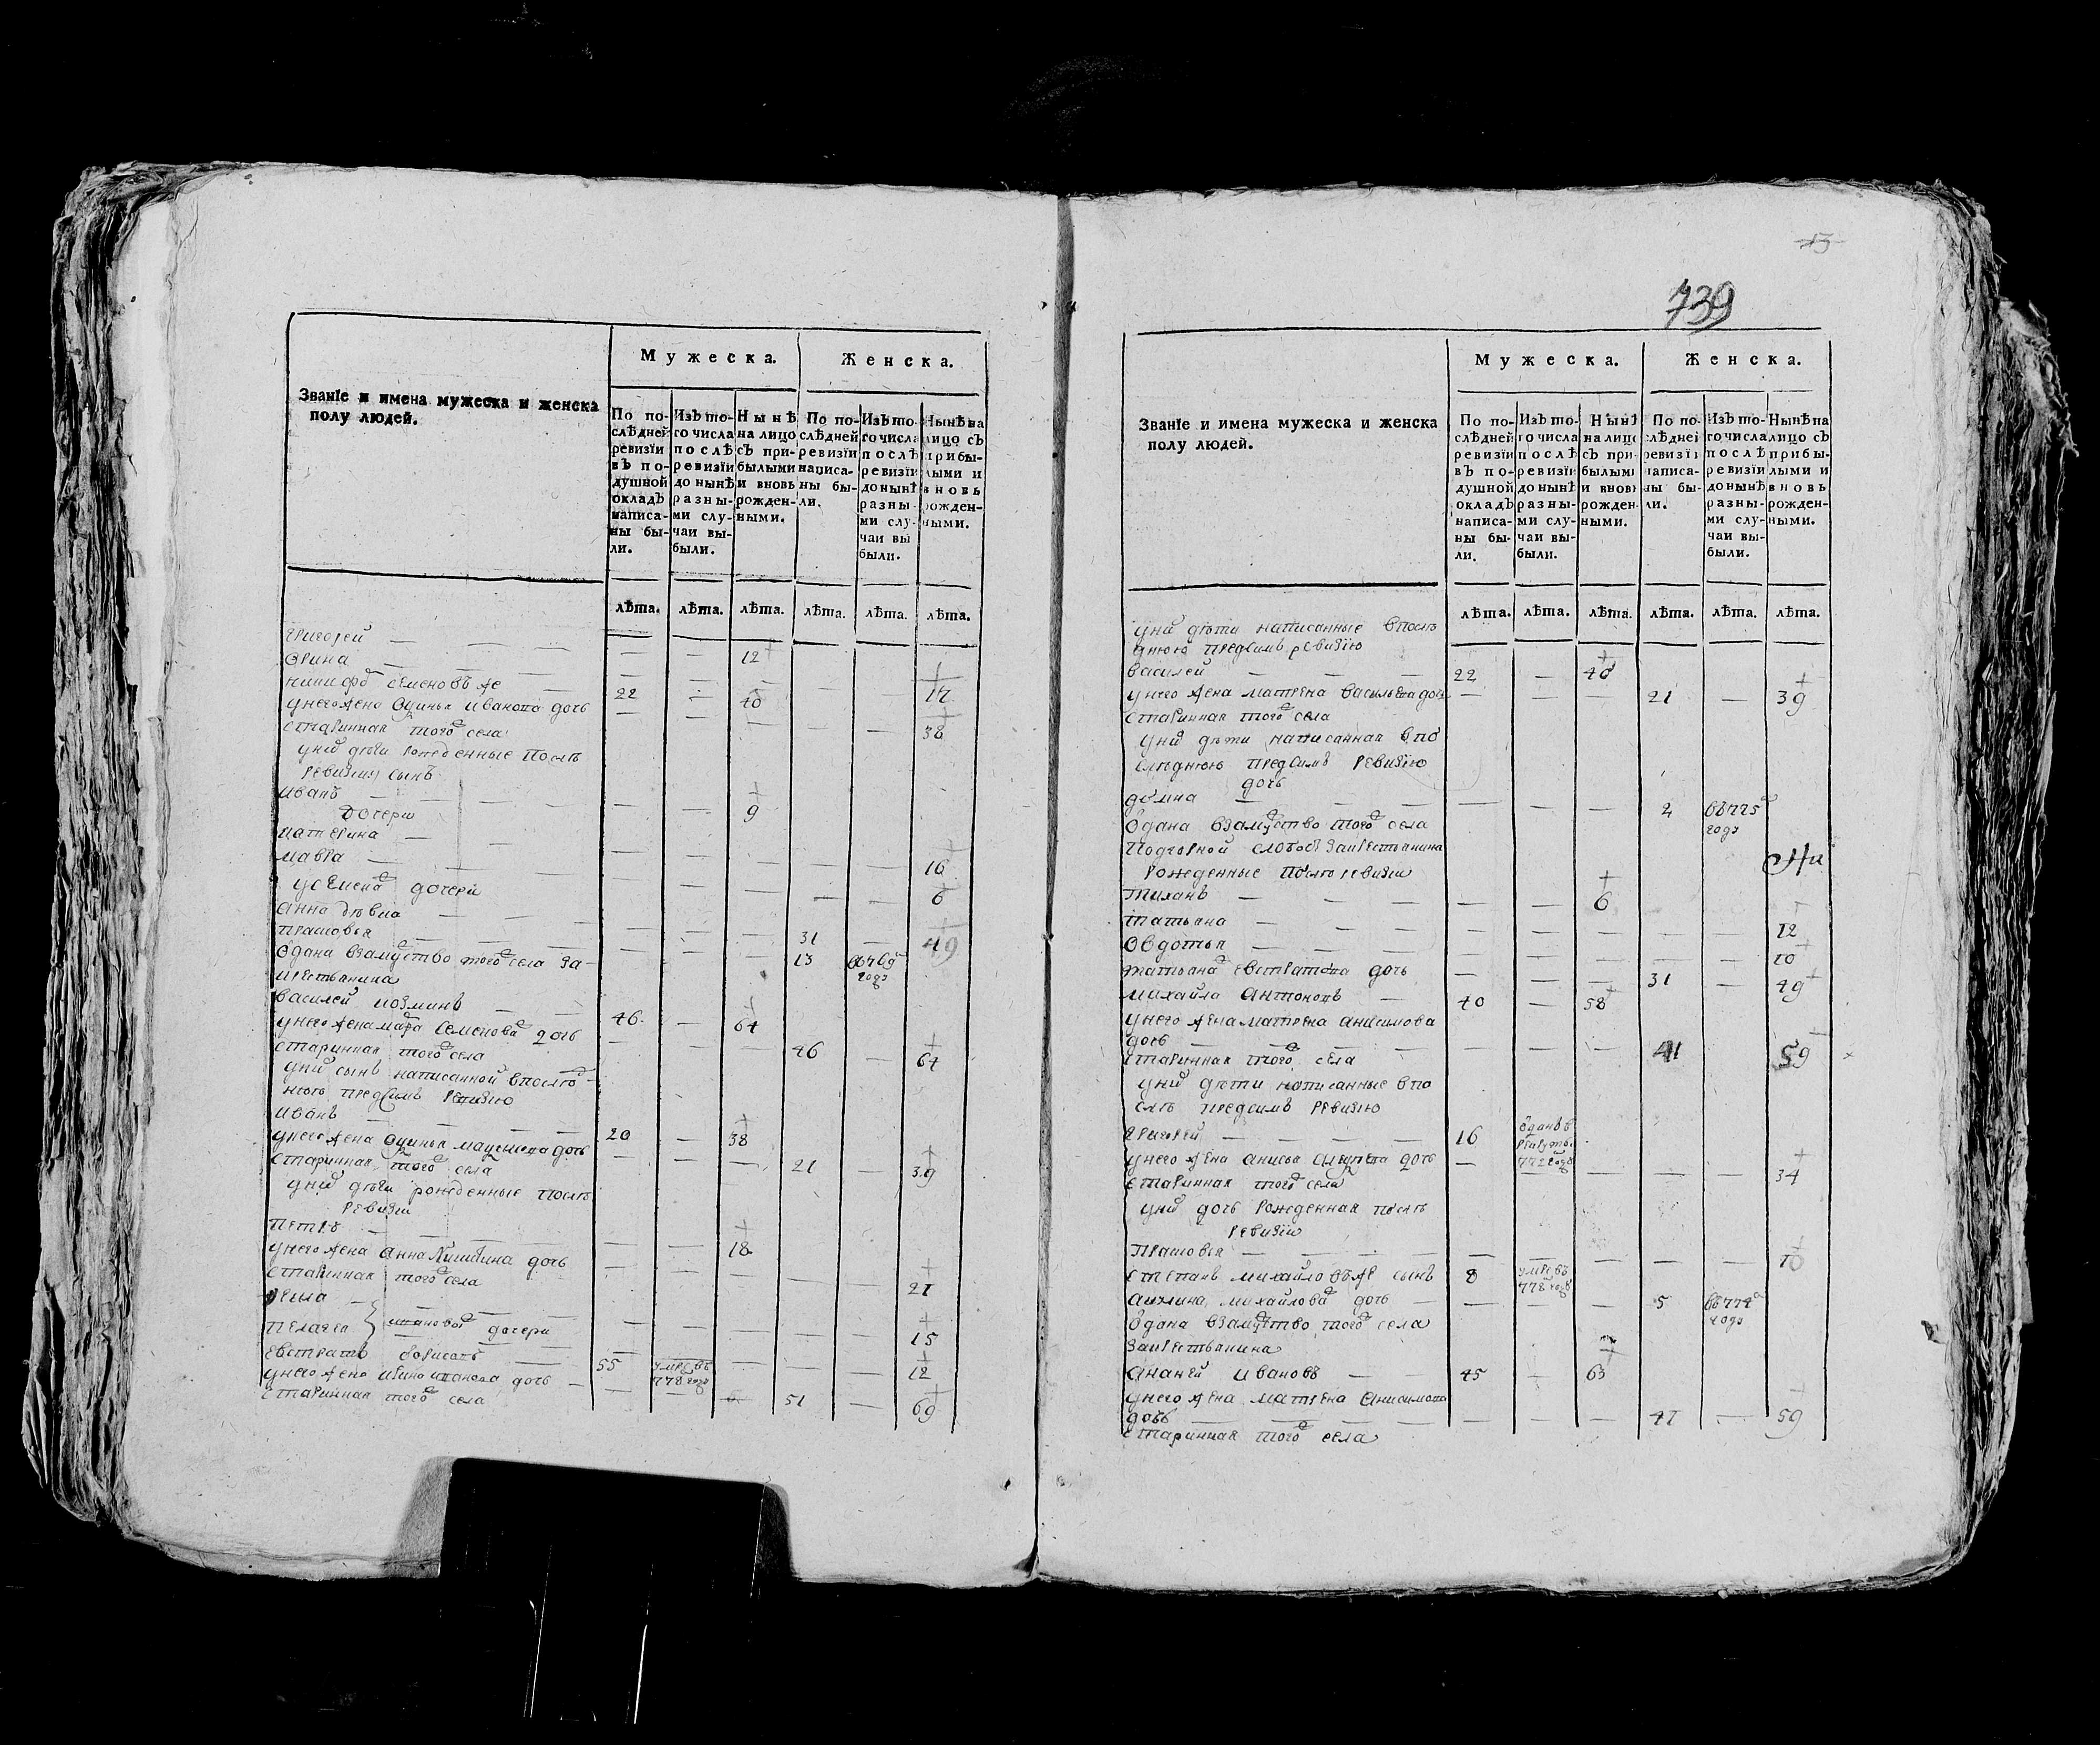 Званїе и имена мужеска и женска
полу людей.
Мужеска.
Женска.
По послѣдней ревизїи въ подушной окладъ написаны были.
Изъ того числа послѣ ревизїи до нынѣ разными случаи выбыли.
Нынѣ на лицо съ прибылыми и вновь рожденными.
По послѣдней ревизїи написаны были.
Изъ того числа послѣ ревизїи до нынѣ разными случаи выбыли.
Нынѣ на лицо съ прибылыми и вновь рожденными.
лѣта. лѣта. лѣта. лѣта. лѣта. лѣта.
Григорей — 12
Орина —
Семеновъ же 22 — 40
у него жена Иванова дочь
старинная того села 38
у них дѣти рожденные послѣ
ревизии сынъ
Иванъ — 9
дочери
Катерина — 16
Мавра — 6
дочери
Анна девка — 31 — 49
Прасковья — 13
Одана взамуство того села за
крестьянина
Василей Козминъ 46 — 64
у него жена Семенова дочь 46 — 64
старинная того села
у них сынъ написанной в послѣд
нюю пред симъ ревизию
Иванъ — 20 — 38
у него жена дочь 21 — 39
старинная того села
у них дѣти рожденные послѣ
ревизии
Петръ — 18
у него жена Анна Никитина дочь 21
старинная того села
15
Пелагея дочери 12
Евстратъ Борисовъ 55 умре въ 778 году
у него жена дочь 51 — 69
старинная того села
739
Званїе и имена мужеска и женска
полу людей.
Мужеска.
Женска.
По послѣдней ревизїи въ подушной окладъ написаны были.
Изъ того числа послѣ ревизїи до нынѣ разными случаи выбыли.
Нынѣ на лицо съ прибылыми и вновь рожденными.
По послѣдней ревизїи написаны были.
Изъ того числа послѣ ревизїи до нынѣ разными случаи выбыли.
Нынѣ на лицо съ прибылыми и вновь рожденными.
лѣта. лѣта. лѣта. лѣта. лѣта. лѣта.
у них дѣти написанные в послѣ
днюю пред симъ ревизїю
Василей — 22 — 40
у него жена Матрена Васильева дочь 21 — 39
старинная того села
у них дѣти написанная в по
слѣднюю пред симъ ревизїю
дочь
Домна — 2 въ 775 году
Одана взамуство того села
слободы за крестьянина
рожденные послѣ ревизии
Тиханъ — 6
Татьяна — 12
Овдотья — 10
Татьяна Евстратова дочь 31 — 49
Михайла Антоновъ 40 — 58
у него жена Матрена Анисимова
дочь — 41 59
старинная того села
у них дѣти написанные в по
слѣ пред симъ ревизїю
Григорей — 16 одан в рекруты 772 году
у него жена Анисья дочь — 34
старинная того села
у них дочь рожденная послѣ
ревизїи
Прасковья — 10
Степанъ Михайловъ же сынъ 8 умре въ 778 году
Акулина Михайлова дочь 5 въ 774 году
Одана взамуство того села
за крестьянина
Ананей Ивановъ 45 — 63
у него жена Матрена Анисимова
дочь — 41 — 59
старинная того села